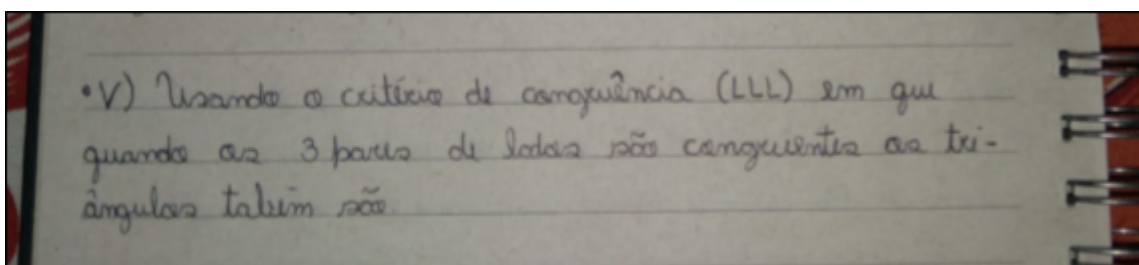 •V) Usando o critério de congruência (LLL) em que
quando os 3 pares de lados são congruentes os tri-
ângulos também são.